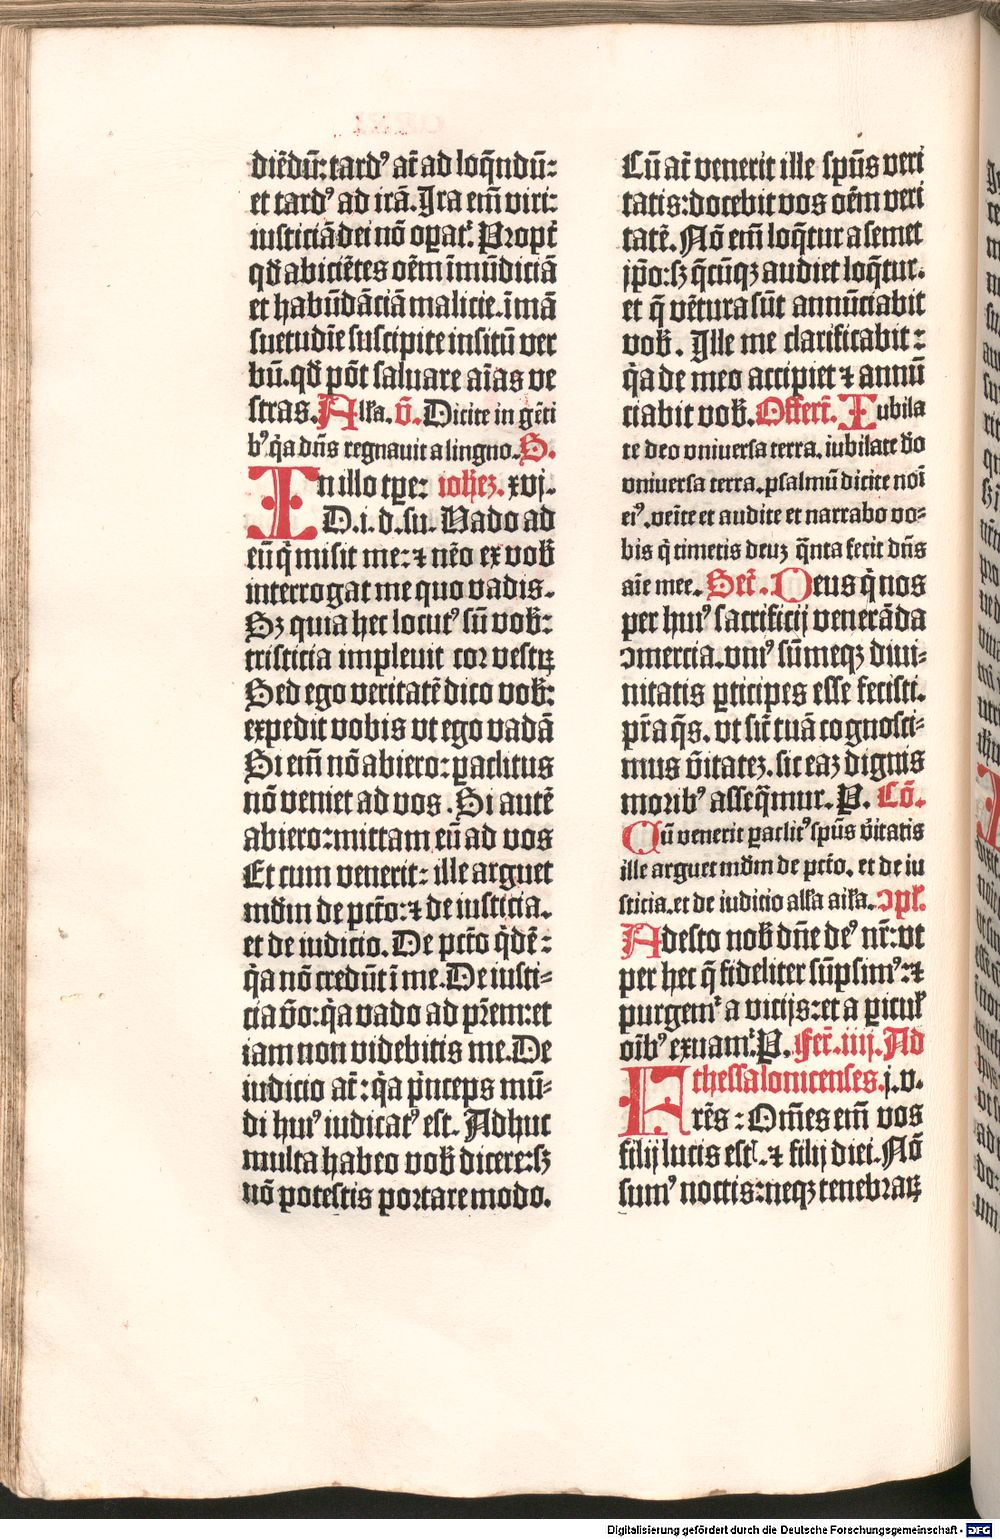 diēdū: tardꝰ at̄ ad loq̄ndū:
et tardꝰ ad irā. Ira em̄ viri:
iusticiā dei nō opatᷣ. Propt̄
qd̄ abiciētes oēm īmūdiciā
et habūdāciā malicie. ī mā
suetudīe suscipite insitū ver
bū. qd̄ pōt saluare aīas ve
stras. Alla. v̄. Dicite in gēti
bꝰ qͥa dn̄s regnauit a lingno. S.
In illo tꝑe: iohez. xvj.
D. i. d. su. Uado ad
eū qͥ misit me: ⁊ nēo ex vob̄
interrogat me quo vadis.
Sz quia hec locutꝰ sū vob̄:
tristicia impleuit cor vestꝝ
Sed ego veritatē dico vob̄:
expedit vobis vt ego vadā
Si em̄ nō abiero: ꝑaclitus
nō veniet ad vos. Si autē
abiero: mittam eū ad vos
Et cum venerit: ille arguet
md̄m de pctō: ⁊ de iusticia.
et de iudicio. De pctō qͥdē:
qͥa nō credūt ī me. De iusti⸗
cia v̄o: qͥa vado ad pr̄em: et
iam non videbitis me. De
iudicio at̄: qͥa pͥnceps mū⸗
di huiꝰ iudicatꝰ est. Adhuc
multa habeo vob̄ dicere: sz
nō potestis portare modo.
Cū at̄ venerit ille spūs veri
tatis: docebit vos oēm veri
tatē. Nō em̄ loq̄tur a semet
ip̄o: sz q̄cūqz audiet loq̄tur.
et q̄ vētura sūt annūciabit
vob̄. Ille me clarificabit:
qͥa de meo accipiet ⁊ annū
ciabit vob̄. Offert̄. Iubila
te deo vniuersa terra. iubilate d̄o
vniuersa terra. psalmū dicite noī
eiꝰ. veīte et audite et narrabo vo⸗
bis qͥ timetis deuz q̄nta fecit dn̄s
aīe mee. Secr̄. Deus qͥ nos
per huiꝰ sacrificij venerāda
ɔmercia. vniꝰ sūmeqz diui⸗
nitatis ꝑticipes esse fecisti.
pr̄a q̄s. vt sic̄ tuā cognosci⸗
mus v̄itatez. sic eaz dignis
moribꝰ asseq̄mur. P. Cō.
Cū venerit ꝑaclitꝰ spūs v̄itatis
ille arguet md̄m de pctō. et de iu
sticia. et de iudicio alla alla. ɔpl̄.
Adesto nob̄ dn̄e deꝰ nr̄: vt
per hec q̄ fideliter sūpsimꝰ: ⁊
purgemᷣ a vicijs: et a ꝑicul̄
oīb̄ꝰ exuamᷣ. P. Fer̄. iiij. Ad
thessalonicenses. j. v.
Frēs: Om̄es em̄ vos
filij lucis estꝭ. ⁊ filij diei. Nō
sumꝰ noctis: neqz tenebraꝝ
Digitalisierung gefördert durch die Deutsche Forschungsgemeinschaft - DFG